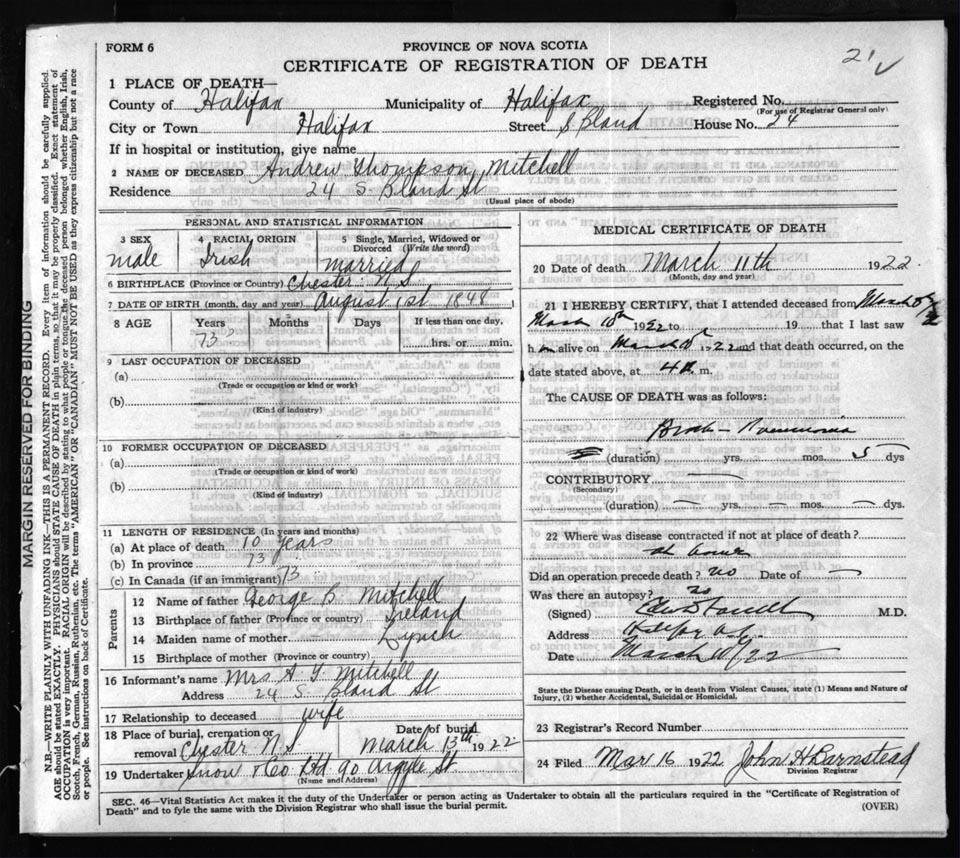 FORM 6
PROVINCE OF NOVA SCOTIA
CERTIFICATE OF REGISTRATION OF DEATH
21 ✓
1 PLACE OF DEATH—
County of Halifax Municipality of Halifax Registered No.
(For use of Registrar General only)
City or Town Halifax Street S Bland House No. 24
If in hospital or institution, give name
2 NAME OF DECEASED Andrew Thompson Mitchell
Residence 24 S. Bland St
(Usual place of abode)
PERSONAL AND STATISTICAL INFORMATION
3 SEX male
4 RACIAL ORIGIN Irish
5 Single, Married, Widowed or Divorced (Write the word) married
6 BIRTHPLACE (Province or Country) Chester N S
7 DATE OF BIRTH (month, day, year) August 1st 1848
8 AGE Years Months Days If less than one day,
73 hrs. or min.
9 LAST OCCUPATION OF DECEASED
(a)
(Trade or occupation or kind or work)
(b)
(Kind of industry)
10 FORMER OCCUPATION OF DECEASED
(a)
(Trade or occupation or kind of work)
(b)
(Kind of industry)
11 LENGTH OF RESIDENCE (In years and months)
(a) At place of death 10 years
(b) In province 73
(c) In Canada (if an immigrant) 73
Parents
12 Name of father George B Mitchell
13 Birthplace of father (Province or country) Ireland
14 Maiden name of mother Lynch
15 Birthplace of mother (Province or country)
16 Informant's name Mrs A T Mitchell
Address 24 S. Bland St
17 Relationship to deceased wife
18 Place of burial, cremation or removal Chester N S
Date of burial March 13th 1922
19 Undertaker Snow & Co Ltd 90 Argyle St
(Name and Address)
MEDICAL CERTIFICATE OF DEATH
20 Date of death March 11th 1922.
(Month, day and year)
21 I HEREBY CERTIFY, that I attended deceased from March
March 10th 1922 to 19 that I last saw
him alive on March 1922 and that death occurred, on the
date stated above, at 4 m.
The CAUSE OF DEATH was as follows:
Broncho-Pneumonia
(duration) yrs. mos. 5 dys
CONTRIBUTORY
(Secondary)
(duration) yrs. mos. dys.
22 Where was disease contracted if not at place of death?
at home
Did an operation precede death? no Date of
Was there an autopsy? no
(Signed) M.D.
Address Halifax N.S.
Date March 10/22
State the Disease causing Death, or in death from Violent Causes, state (1) Means and Nature of
Injury, (2) whether Accidental, Suicidal or Homicidal.
23 Registrar's Record Number
24 Filed Mar 16 1922 John H Barnstead
Division Registrar
SEC. 46—Vital Statistics Act makes it the duty of the Undertaker or person acting as Undertaker to obtain all the particulars required in the "Certificate of Registration of
Death" and to fyle the same with the Division Registrar who shall issue the burial permit.
(OVER)
MARGIN RESERVED FOR BINDING
N.B.—WRITE PLAINLY WITH UNFADING INK—THIS IS A PERMANENT RECORD. Every item of information should be carefully supplied.
AGE should be stated EXACTLY. PHYSICIANS should STATE CAUSE OF DEATH in plain terms, so that it may be properly classified. Exact statement of
OCCUPATION is very important. RACIAL ORIGIN will be described by stating to what people or tongue the deceased person belonged whether English, Irish,
Scotch, French, German, Russian, Ruthenian, etc. The terms "AMERICAN" OR "CANADIAN" MUST NOT BE USED as they express citizenship but not a race
or people. See instructions on back of Certificate.